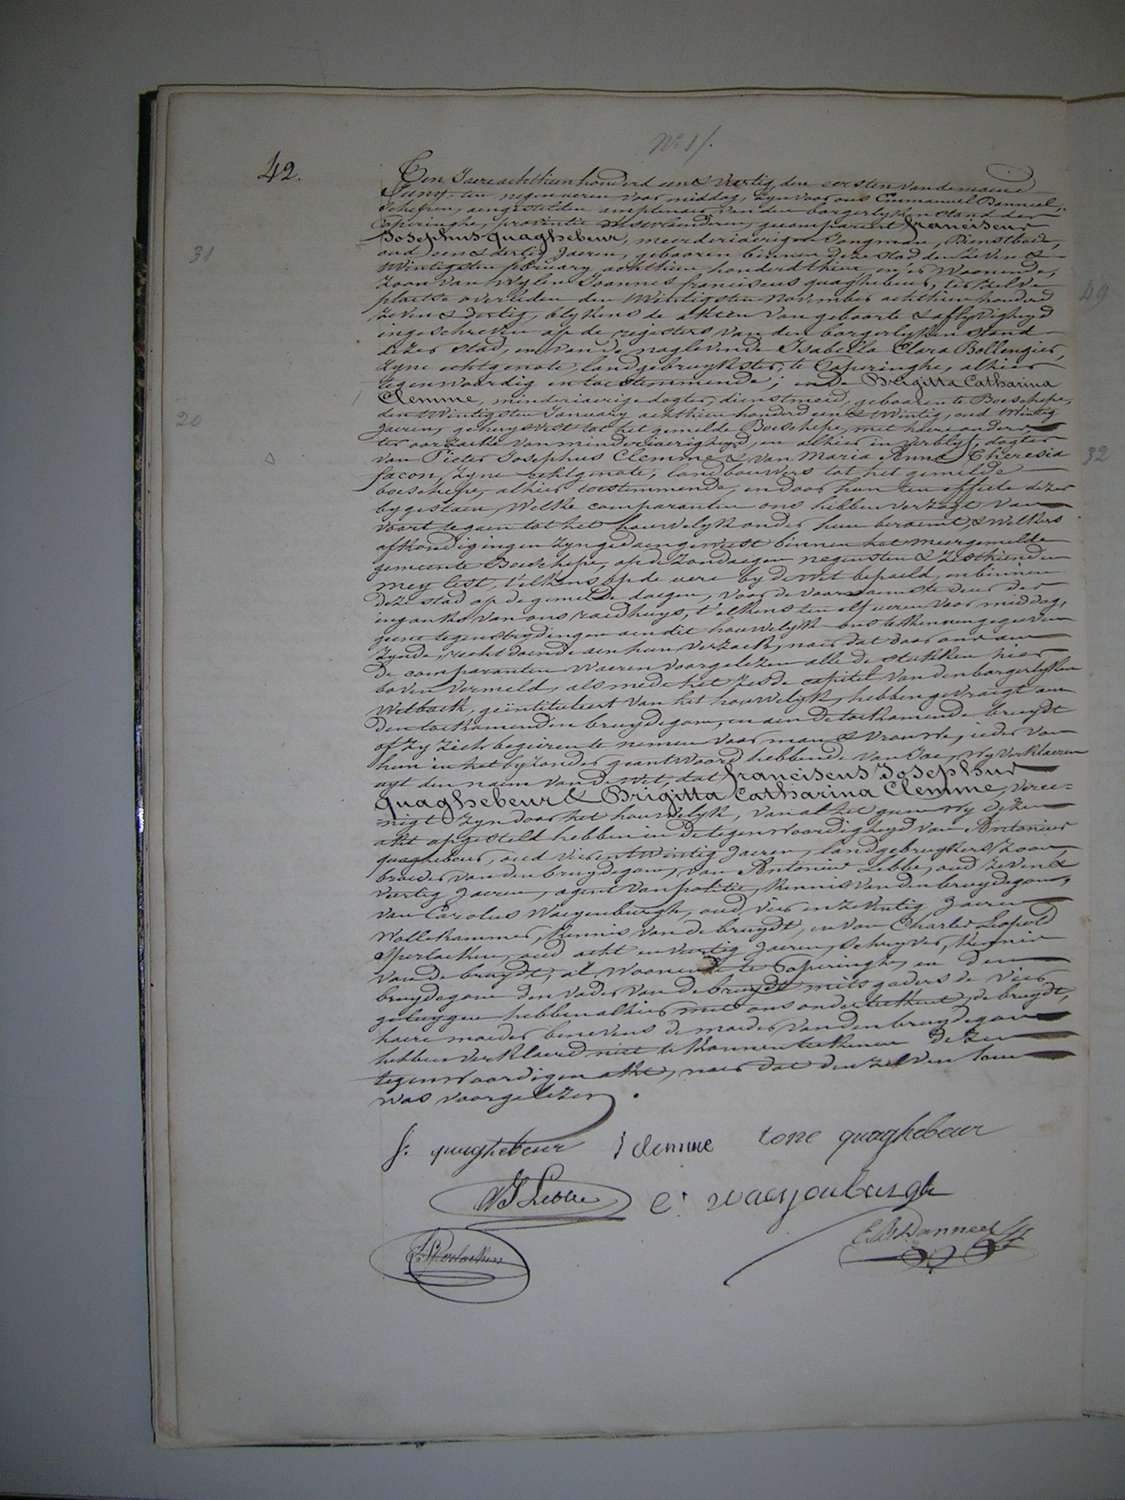 N° 1/.
42.
Ten Jaere achthien honderd een & veertig, den eersten van de maend
Juny, ten negen ueren voor middag, zyn voor ons Emmanuel Danneel,
Schepen, aengestelden amptenaer van den borgerlyken stand der
Poperinghe, provintie Westvlaenderen, gecompareert franciscus
Josephus Quaghebeur, meerderjaerigen Jongman, Dienstbode,
oud een & dertig Jaeren, geboren binnen deze stad den zeven &
31
twintigsten february achthien honderd thien, en er Woonende,
zoon van Wylen Joannes franciscus quaghebeur, ter zelve
49
plaetse overleden den twintigsten November achthien honderd
zeven & dertig, blykens de akten van geboorte & aflyvigheyd
ingeschreven op de registers van den borgerlyken stand
dezer stad, en van de naglevende Isabella Clara Bollengier,
zyne echtgenote, landgebruykster, te Poperinghe, alhier
tegenwoordig en toestemmende; en de Brigitta Catharina
Clemme, minderjaerige dogter, dienstmeid, geboren te Boeschepe,
20
den twintigsten January achthien honderd een & twintig, oud twintig
Jaeren, gehuysvest tot het gemelde Boeschepe, met haere ouders
ter oorzaeke van minderjaerigheyd, en alhier in verblyf, dogter
van Pieter Josephus Clemme & van Maria Anna Theresia
32
facon, zyne echtgenote, landbouwers tot het gemelde
boeschepe, alhier toestemmende, en door hun ten effecte dezer
bygestaen, Welke comparanten ons hebben verzogt van
voort te gaen tot het houwelyk onder hun beraemt, & Welkers
afkondigingen zyn gedaen geweest binnen het meergemelde
gemeente Boeschepe, op de zondaegen negensten & zesthienden
mey lest, t'elkens op de uere by de Wet bepaeld, en binnen
deze stad op de gemelde daegen, voor de voornaemste deur der
ingank van ons raedhuys, t'elkens ten elf ueren voor middag,
geene tegenstrydingen aen dit houwelyk ons te kennen gegeven
zynde, recht doende aen hun verzoek, naer dat door ons aen
de comparanten Weeren voorgelezen alle de stukken hier
boven vermeld, als mede het zesde capitel van den borgerlyken
Wetboek, geïntituleert van het houwelyk, hebben gevraegt aen
den toekomenden bruydegom, en aen de toekomende bruydt
of zy zich begeiren te nemen voor man & vrouwe, ieder van
hun in het byzonder geantwoord hebbende van Jae, Wy verklaeren
uyt den naem van de Wet, dat franciscus Josephus
Quaghebeur & Brigitta Catharina Clemme, veree-
nigt zyn door het houwelyk, van al het gene Wy dezen
akt opgesteld hebben in de tegenwoordigheyd van Antonius
quaghebeur, oud vier en twintig Jaeren, landgebruykers zoon,
broeder van den bruydegom, van Antonius Lebbe, oud zeven &
veertig Jaeren, agent van politie, kennis van den bruydegom,
van Carolus Waeyenburgh, oud vier en zeventig Jaeren
Wollekammer, kennis van de bruydt, en van Charles Leopold
Perlacken, oud acht en veertig Jaeren, schryver, kennis
van de bruydt, al Woonende te Poperinghe, en den
bruydegom den vader van de bruydt mits gaders de vier
getuygen hebben alhier met ons onderteekent, de bruydt,
haere moeder benevens de moeder van den bruydegom
hebben verklaerd niet te konnen teekenen dezen
tegenwoordigen akt, naer dat den zelven hun
was voorgelezen.
f. quaghebeur J clemme tone quaghebeur
AJ Lebbe C. waeyenburgh
E. Danneel